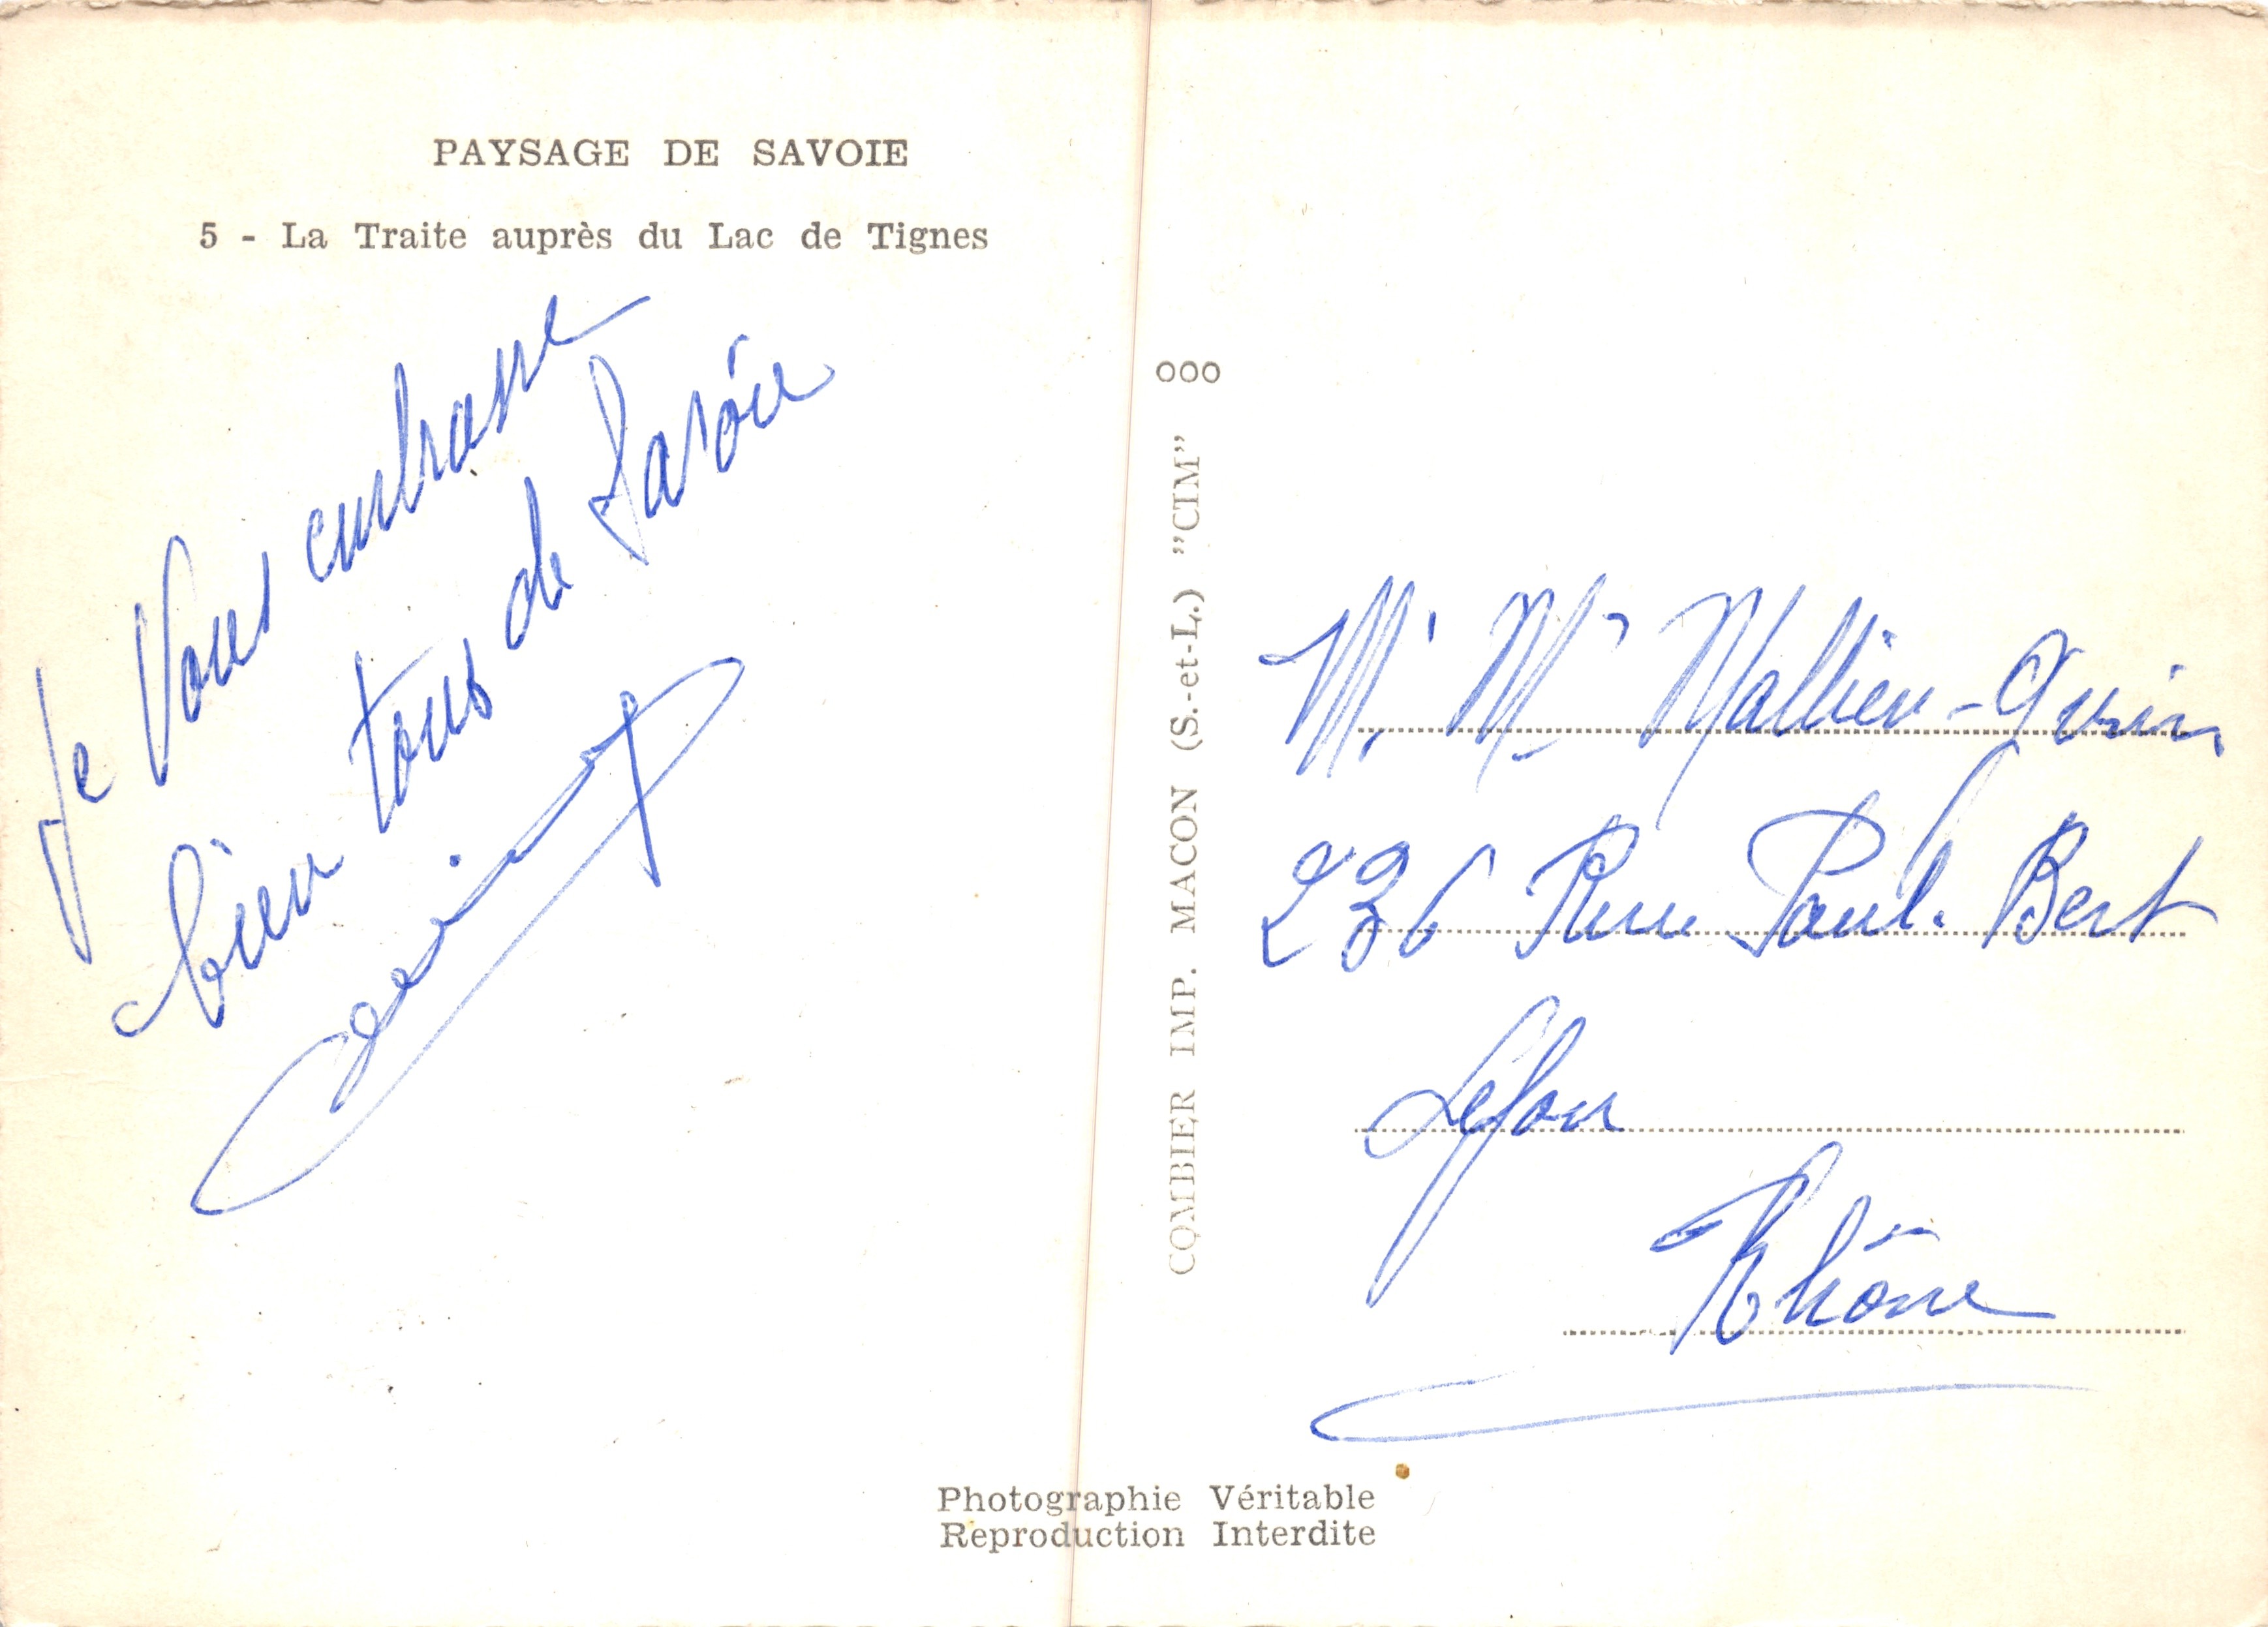 PAYSAGE DE SAVOIE
5 - La Traite auprès du Lac de Tignes
Je Vous embrasse
bien tous de Savoie
ooo
COMBIER IMP. MACON (S.-et-L.) "CIM"
Mr Me
236 Rue Paul Bert
Lyon
Rhône
Photographie Véritable
Reproduction Interdite